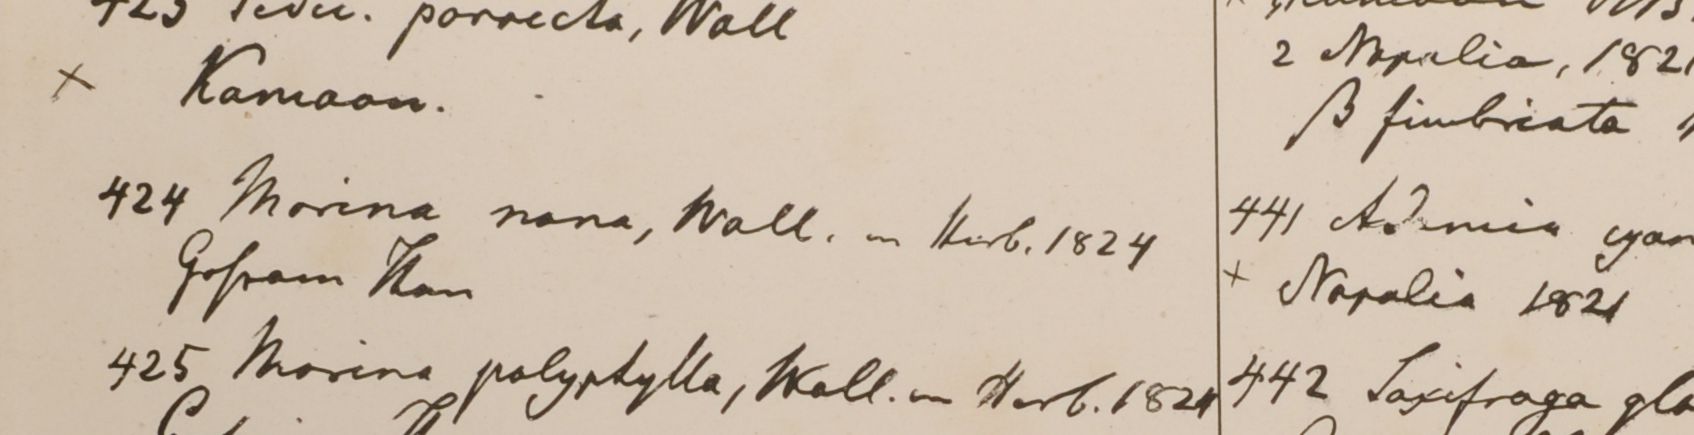 423 Pedic. porrecta, Wall
× Kamaon.
424 Morina nana, Wall. in Herb. 1824
Gosam Than
425 Morina polyphylla, Wall. in Herb. 1824
2 Napalia, 1821
β fimbriata
441 Adamia cyan
+ Napalia 1821
442 Saxifraga glo